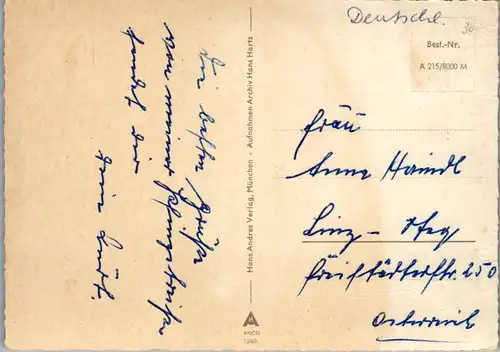 Deutschl.
30
Best.-Nr.
A 215/8000 M
Die besten Grüße
von meiner
sendet dir
dein
Hans Andres Verlag, München - Aufnahmen Archiv Hans Hartz
ANCO
Frau
Anna Haindl
Linz - Steg
Freistädterstr. 250
Österreich